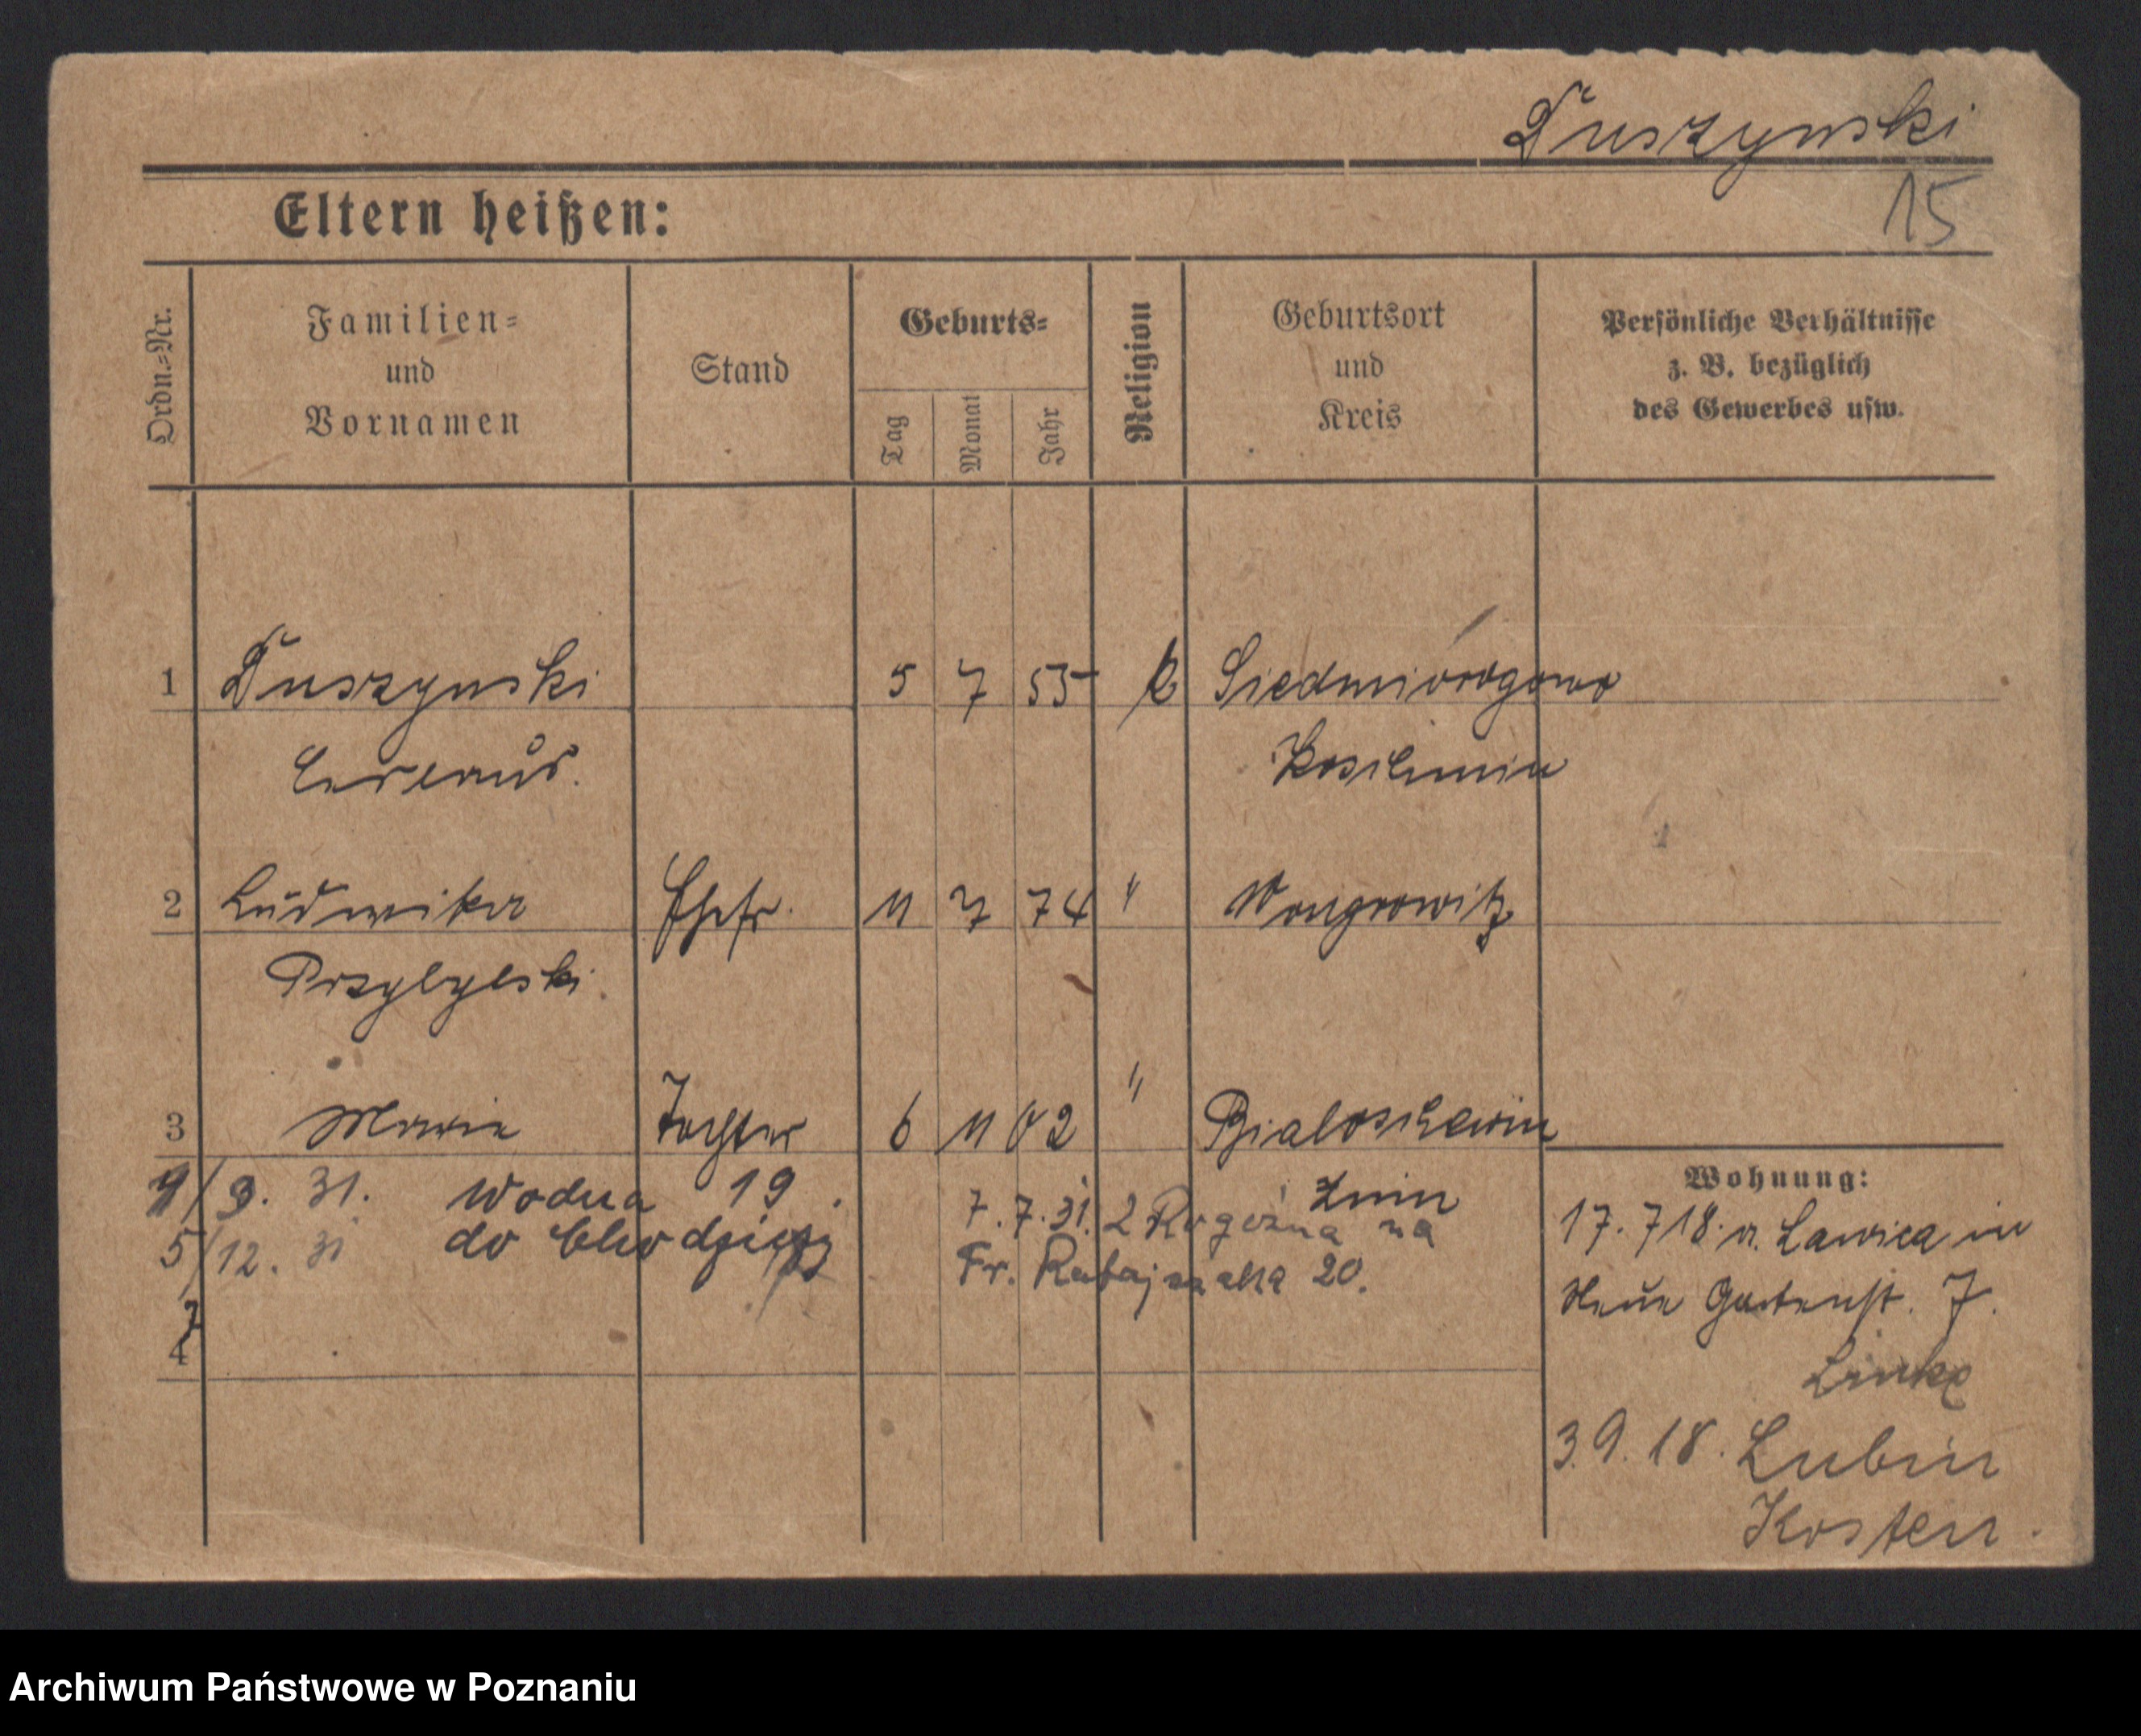 Duszynski
15
Eltern heißen:
Ordn.=Nr.
Familien=
und
Vornamen
Stand
Geburts=
Tag
Monat
Jahr
Religion
Geburtsort
und
Kreis
Persönliche Verhältnisse
z. B. bezüglich
des Gewerbes usw.
1 Duszynski 5 7 55 k Siedmiorogowo
Koschmin
2 Ludwika Ehefr. 11 7 74 " Wongrowitz
Przybylski
3 Maria Tochter 6 11 02 " Bialoschewin
Znin
9/9. 31. Wodna 19.
5/12. 31 do Chodzieży
7.7.31. z Rogoźna na
Fr. Ratajczaka 20.
4
Wohnung:
17.7 18. v. Lawica in
Neue Gartenst. 7.
Linke
3.9.18. Lubin
Kosten.
Archiwum Państwowe w Poznaniu